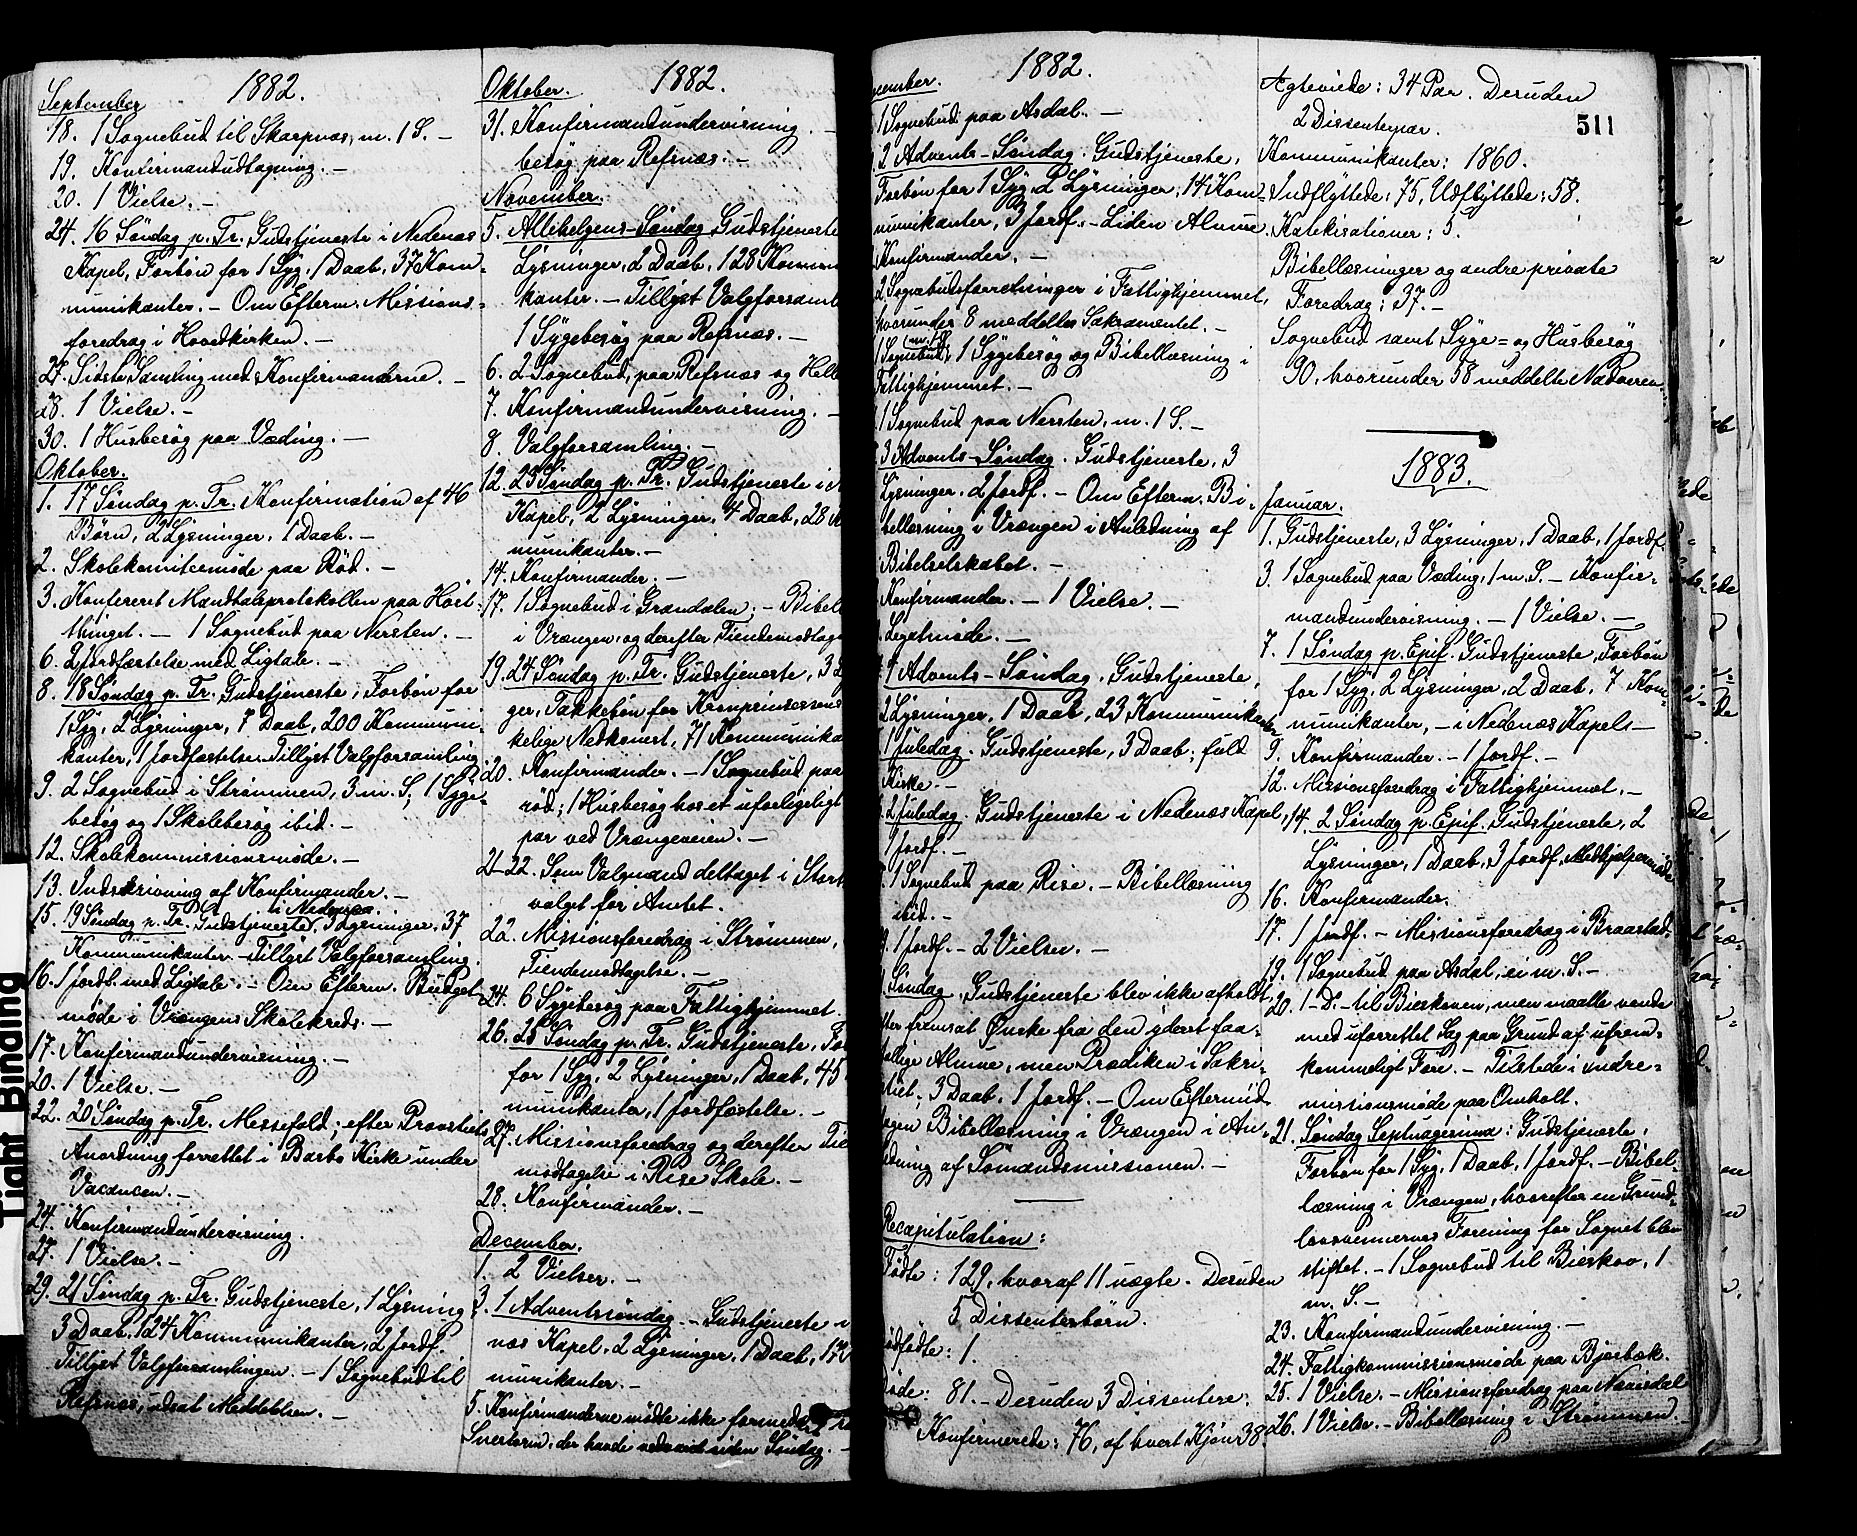 1882.
September
18. 1 Sognebud til Skarpnæs, m. 1 S. –
19. Konfirmandudtagning. –
20. 1 Vielse. –
24. 16 Søndag p. Tr. Gudstjeneste i Nedenæs
Kapel, Forbøn for 1 Syg, 1 Daab, 37 Kom-
munikanter. – Om Efterm. Missions-
foredrag i Hovedkirken. –
27. Sidste Samling med Konfirmanderne. –
28. 1 Vielse. –
30. 1 Husbesøg paa Væding. –
Oktober.
1. 17 Søndag p. Tr. Konfirmation af 46
Børn, 2 Lysninger, 1 Daab. –
2. Skolekomiteemøde paa Rød. –
3. Konfereret Mandtalsprotokollen paa Høst-
thinget. – 1 Sognebud paa Nersten. –
6. 2 Jordfæstelse med Ligtale. –
8. 18 Søndag p. Tr. Gudstjeneste, Forbøn for
1 Syg, 2 Lysninger, 7 Daab, 200 Kommuni-
kanter, 1 Jordfæstelse. Tillyst Valgforsamling.
9. 2 Sognebud i Strømmen, 3 m. S., 1 Syge-
besøg og 1 Skolebesøg ibid. –
12. Skolekommissionsmøde. –
13. Indskrivning af Konfirmander. –
15. 19 Søndag p. Tr. Gudstjeneste i Nedenæs, 3 Lysninger, 37
Kommunikanter. – Tillyst Valgforsamling.
16. 1 Jordf. med Ligtale. – Om Efterm. Budget-
møde i Vrængens Skolekreds. –
17. Konfirmandundervisning. –
20. 1 Vielse. –
22. 20 Søndag p. Tr. Messefald; efter Provstiets
Anordning forrettet i Barbo Kirke under
Vacancen. –
24. Konfirmandundervisning.
27. 1 Vielse. –
29. 21 Søndag p. Tr. Gudstjeneste, 1 Lysning
3 Daab, 124 Kommunikanter, 2 Jordf.
Tillyst Valgforsamlingen. – 1 Sognebud til
Refsnæs, udsat Meddelelsen. –
1882.
Oktober.
31. Konfirmandundervisning. –
besøg paa Refsnæs. –
November.
5. Allehelgens-Søndag Gudstjeneste
Lysninger, 2 Daab, 128 Kommuni
kanter. – Tillyst Valgforsamli
1 Sygebesøg paa Refsnæs. –
6. 2 Sognebud, paa Refsnæs og Helle
7. Konfirmandundervisning. –
8. Valgforsamling. –
12. 23 Søndag p. Tr. Gudstjeneste i N
Kapel, 2 Lysninger, 4 Daab, 28 K
munikanter. –
14. Konfirmander. –
17. 1 Sognebud i Grændalen. – Bibel
i Vrængen, og derefter Tiendemodtag
19. 24 Søndag p. Tr. Gudstjeneste, 3 L
ger, Takkebøn for Kronprinsessens
kelige Nedkomst, 71 Kommunika
20. Konfirmander. – 1 Sognebud paa
rød; 1 Husbesøg hos et uforligeligt
par ved Vrængeveien. –
21–22. Som Valgmand deltaget i Stort
valget for Amtet.
22. Missionsforedrag i Strømmen,
Tiendemodtagelse. –
24. 6 Sygebesøg paa Fattighjemmet.
26. 25 Søndag p. Tr. Gudstjeneste, For
for 1 Syg, 2 Lysninger, 1 Daab, 45
munikanter, 1 Jordfæstelse. –
27. Missionsforedrag og derefter Tie
modtagelse i Rise Skole. –
28. Konfirmander. –
December.
1. 2 Vielser. –
3. 1 Adventssøndag. – Gudstjeneste i
næs Kapel, 2 Lysninger, 1 Daab, 17
munikanter. –
5. Konfirmanderne mødte ikke formedelst
Snestorm, der havde vedvaret siden Søndag. –
1882.
cember.
1 Sognebud paa Asdal. –
2 Advents-Søndag. Gudstjeneste,
Forbøn for 1 Syg, 2 Lysninger, 14 Kom-
munikanter, 3 Jordf. – Liden Almue.
Konfirmander. –
2 Sognebudsforretninger i Fattighjemmet,
hvorunder 8 meddeltes Sakramentet. –
1 Sognebud m. 1 S., 1 Sygebesøg og Bibellæsning i
Fattighjemmet. –
1 Sognebud paa Nersten, m. 1 S. –
3 Advents-Søndag. Gudstjeneste, 3
Lysninger, 2 Jordf. – Om Efterm. Bi-
bellæsning i Vrængen i Anledning af
Bibelselskabet. –
Konfirmander. – 1 Vielse. –
Legatmøde. –
4 Advents-Søndag. Gudstjeneste,
3 Lysninger, 1 Daab, 23 Kommunikanter.
1 Juledag. Gudstjeneste, 3 Daab; fuld
Kirke. –
2 Juledag. Gudstjeneste i Nedenæs Kapel,
1 Jordf. –
1 Sognebud paa Rise. – Bibellæsning
ibid. –
1 Jordf. – 2 Vielser. –
Søndag. Gudstjeneste blev ikke afholdt,
fter fremsat Ønske fra den yderst faa-
tallige Almue, men Prædiken i Sakri-
stiet; 3 Daab, 1 Jordf. – Om Eftermid-
dagen Bibellæsning i Vrængen i An-
ledning af Sømandsmissionen. –
Recapitulation:
Fødte: 129, hvoraf 11 uægte. Desuden
5 Dissenterbørn.
ødfødte: 1.
Døde: 81. – Desuden 3 Dissentere.
Konfirmerede: 76, af hvert Kjøn 38.
Ægteviede: 34 Par. Desuden
2 Dissenterpar.
511
Kommunikanter: 1860.
Indflyttede: 75, Udflyttede: 58.
Katekisationer: 5.
Bibellæsninger og andre private
Foredrag: 37. –
Sognebud samt Syge- og Husbesøg
90, hvorunder 58 meddelte Nadveren.
1883.
Januar.
1. Gudstjeneste, 3 Lysninger, 1 Daab, 1 Jordf.
3. 1 Sognebud paa Væding, 1 m. S. – Konfir-
mandundervisning. – 1 Vielse. –
7. 1 Søndag p. Epif. Gudstjeneste, Forbøn
for 1 Syg, 2 Lysninger, 2 Daab, 7 Kom-
munikanter, – i Nedenæs Kapels –
9. Konfirmander. – 1 Jordf. –
12. Missionsforedrag i Fattighjemmet. –
14. 2 Søndag p. Epif. Gudstjeneste, 2
Lysninger, 1 Daab, 3 Jordf. Medhjælpermøde
16. Konfirmander.
17. 1 Jordf. – Missionsforedrag i Braastad.
19. 1 Sognebud paa Asdal, ei m. S. –
20. 1 – Do – til Bieskoven, men maatte vende
med uforrettet Sag paa Grund af ufrem-
kommeligt Føre. – Tilstede i indre-
missionsmøde paa Omholt.
21. Søndag Septuagesima: Gudstjeneste,
Forbøn for 1 Syg, 1 Daab, 1 Jordf. – Bibel-
læsning i Vrængen, hvorefter en Grund-
lovsvennernes Forening for Sognet blev
stiftet. – 1 Sognebud til Bieskov, 1
m. S. –
23. Konfirmandundervisning. –
24. Fattigkommissionsmøde paa Bjorbæk.
25. 1 Vielse. – Missionsforedrag paa Næersdal
26. 1 Vielse. – Bibellæsning i Strømmen. –
Tight Binding